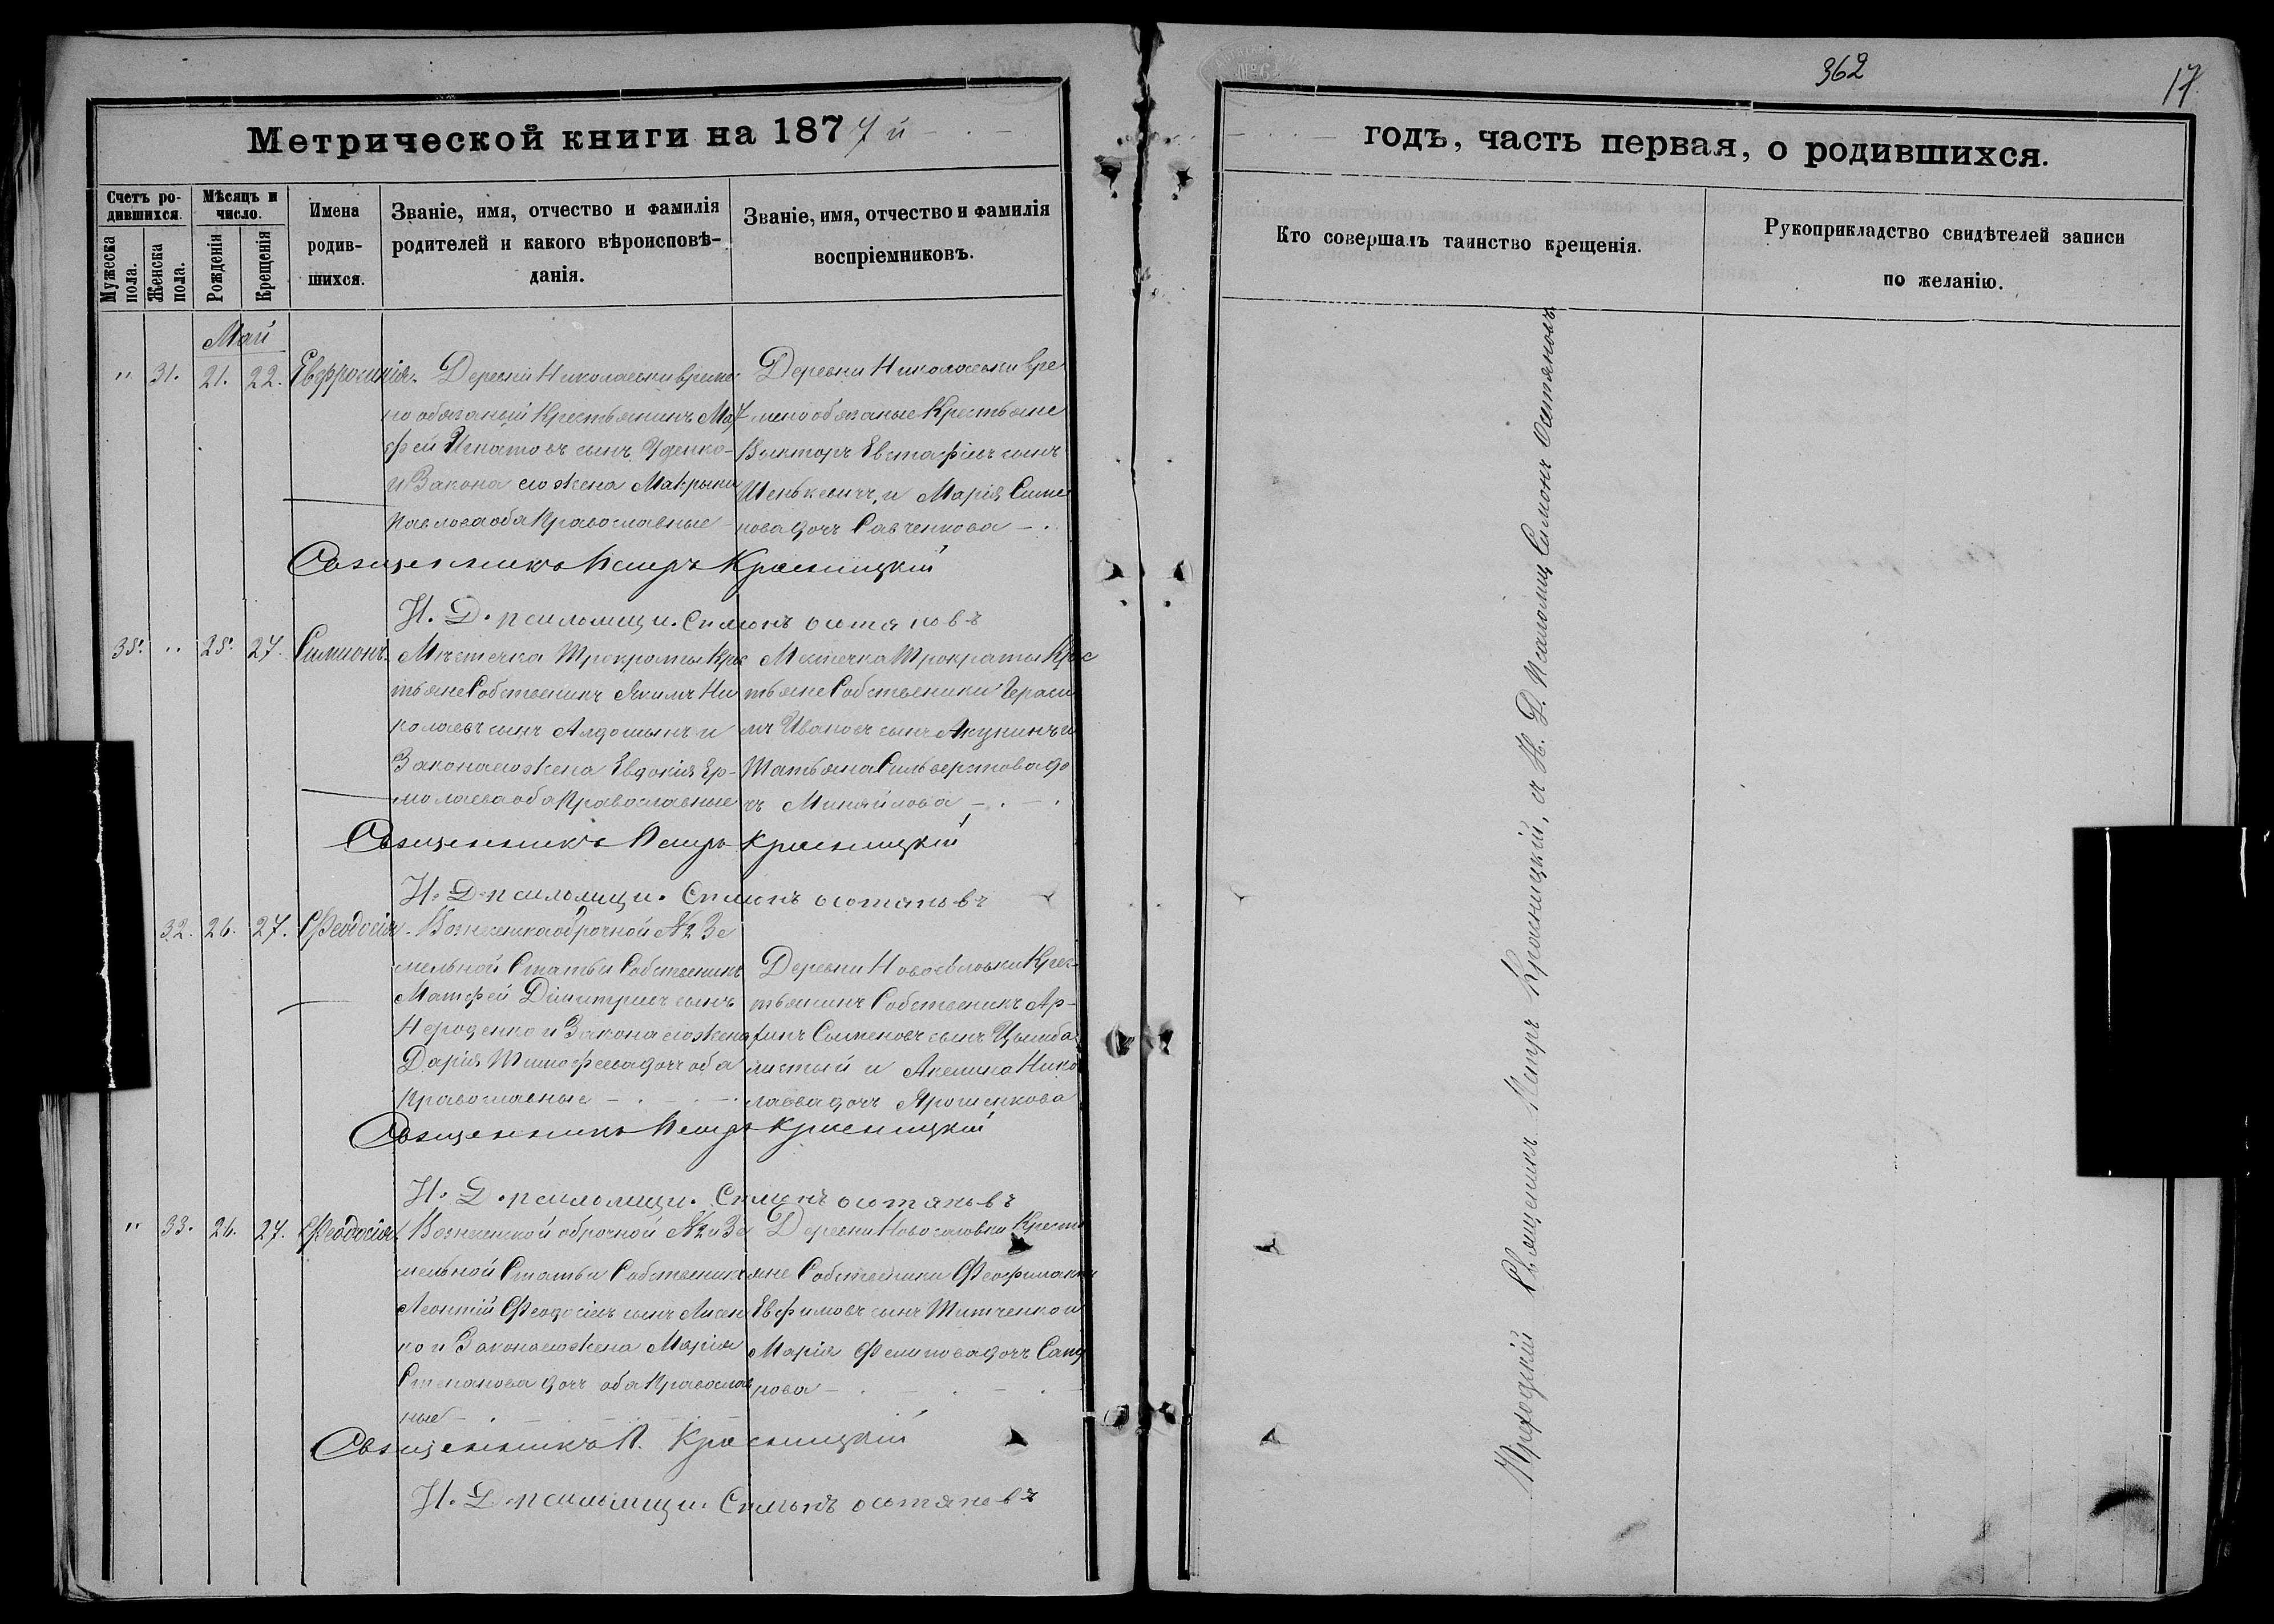 362
17
Метрической книги на 1877 й
годъ, часть первая, о родившихся.
Счетъ ро-
дившихся.
Мужеска
пола.
Женска
пола.
Мѣсяцъ и
число.
Рожденія
Крещенія
Имена
родив-
шихся.
Званіе, имя, отчество и фамилія
родителей и какого вѣроисповѣ-
данія.
Званіе, имя, отчество и фамилія
воспріемниковъ.
Кто совершалъ таинство крещенія.
Рукоприкладство свидѣтелей записи
по желанію.
Май
" 31. 21. 22. Евфросинія.
Деревни Николаевки време
но обязаный Крестьянинъ Мат
фей Игнатовъ сынъ
и Закона его жена Макрына
Павлова оба Православные
Деревни Николаевки вре
мено обязаные Крестьяне
Викторъ Евстафіевъ сынъ
и Марія Симо
нова дочь Савченкова
Священникъ Петръ Красницкій
И. Д. псаломщи. Симонъ Остяновъ
35. " 25. 27. Симионъ.
Мѣстечка Трикраты Крес
тьяне Собственикъ Якимъ Ни
колаевъ сынъ Алдошынъ и
Закона его жена Евдокія Ер-
молаева оба Православные
Местечка Трикраты Крес
тьяне Собственики Гераси
мъ Ивановъ сынъ и
Татьяна Сильверстова до
чь
Священникъ Петръ Красницкій
И. Д. псаломщи. Симонъ Остяновъ
32. 26. 27. Феодосія.
оброчной №2 Зе
мельной Статьи Собственикъ
Матфей Димитріевъ сынъ
Нероденко и Закона его жена
Дарія Тимофеева дочь оба
Православные
Деревни Новосёловки Крес-
тьянинъ Собственикъ
Сыменовъ сынъ Цымба
листый и Акелина Нико
лаева дочь Ярошенкова
Священникъ Петръ Красницкій
И. Д. псаломщи. Симонъ Остяновъ
" 33. 26. 27. Феодосія.
оброчной №2й Зе
мельной Статьи Собственикъ
Леонтій Феодосіевъ сынъ Лисен
ко и Закона его жена Марія
Степанова дочь оба Православ
ные
Деревни Новосёловки Кресть
яне Собственики
Евфимовъ сынъ Титченко и
Марія Филипова дочь
нова
Священникъ П. Красницкій
И. Д. псаломщи. Симонъ Остяновъ
Приходскій Священникъ Петръ Красницкій, и И. Д. Псаломщ. Симонъ Остяновъ